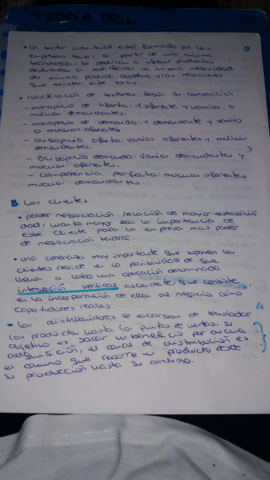 TEORÍA
• Un sector industrial está formado por las
empresas que, a partir de una misma
tecnología, se dedican a ofrecer productos
destinados a satisfacer la misma necesidad
mismo público objetivo y las relaciones
que existen entre
clasificación de sectores según su
- monopolio de oferta: 1 oferente y varios o
muchos demandantes.
- monopolio de demanda: 1 demandante y varios
o muchos oferentes
- Oligopolio oferta: varios oferentes y muchos
demandantes.
- Oligopolio demanda: varios demandantes y
muchos oferentes.
- Competencia perfecta: muchos oferentes,
muchos demandantes.
B. Los clientes
• poder negociación: relación de mayor
cuanto mayor sea la importancia de
este cliente para la empresa más poder
de negociación tendrá.
• una amenaza muy importante que suponen los
clientes reside en la posibilidad de que
lleven a cabo una operación denominada
integración vertical ascendente, que consiste
en la incorporación de ellos al negocio como
competidores reales
• Los distribuidores se encargan de trasladar
los productos hasta los puntos de ventas. Su
objetivo es sacar un beneficio por
el canal de distribución es
el camino que recorre un producto desde
su producción hasta su consumo.